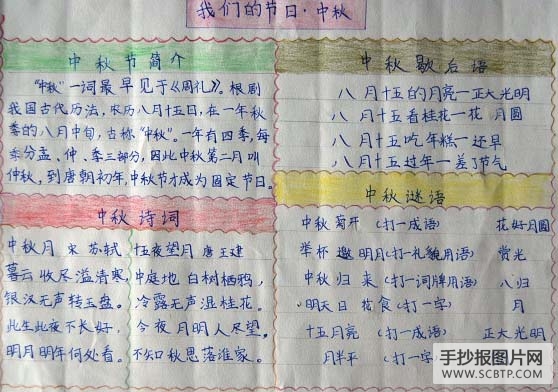 我们的节日·中秋
中秋节简介
"中秋"一词最早见于《周礼》。根剧
我国古代历法,农历八月十五日,在一年秋
季的八月中旬,古称"中秋"。一年有四季,每
季分孟、仲、季三部分,因此中秋第二月叫
仲秋,到唐朝初年,中秋节才成为固定节日。
中秋歇后语
八月十五的月亮—正大光明
八月十五看桂花—花好月圆
八月十五吃年糕—还早
八月十五过年—差了节气
中秋诗词
中秋月 宋 苏轼
暮云收尽溢清寒,
银汉无声转玉盘。
此生此夜不长好,
明月明年何处看。
十五夜望月 唐 王建
中庭地白树栖鸦,
冷露无声湿桂花。
今夜月明人尽望,
不知秋思落谁家。
中秋谜语
中秋菊开(打一成语) 花好月圆
举杯邀明月(打一礼貌用语) 赏光
中秋归来(打一词牌用语) 八归
明天日食(打一字) 月
十五月亮(打一成语) 正大光明
月半平(打一字)
手抄报图片网
www.SCBTP.com